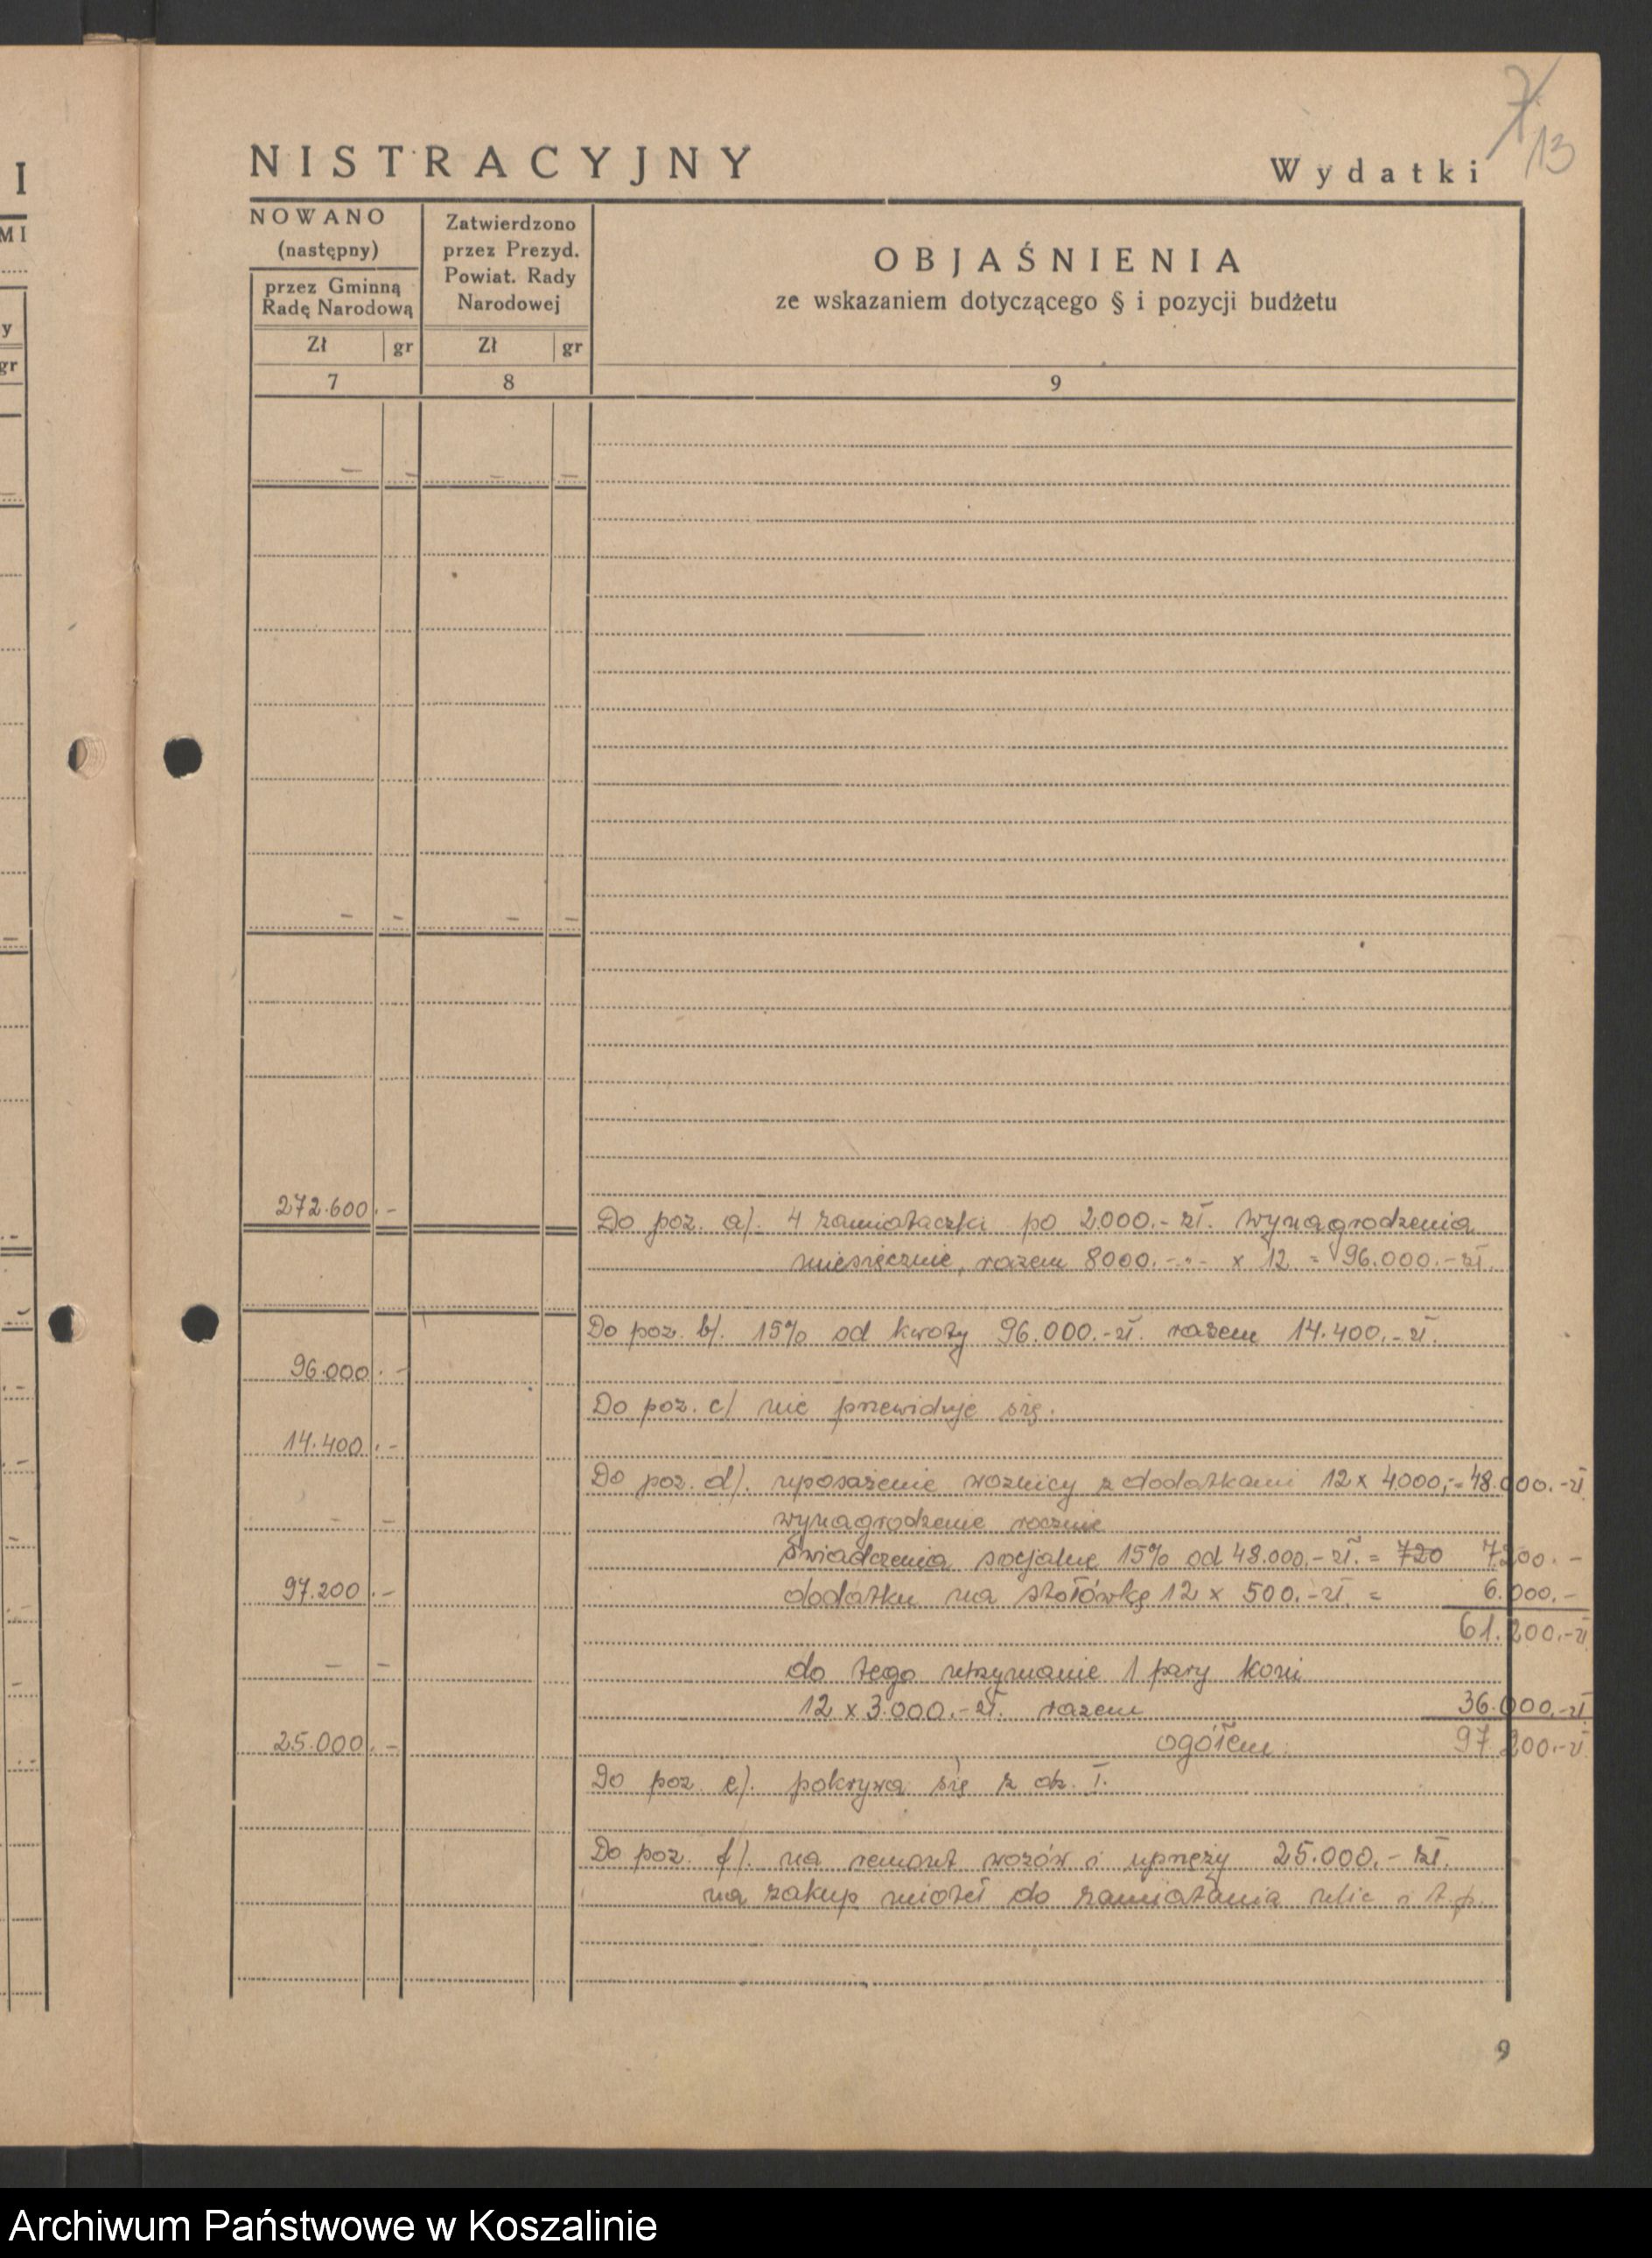 7/13
I
NISTRACYJNY
Wydatki
MI
NOWANO
(następny)
przez Gminną
Radę Narodową
Zatwierdzono
przez Prezyd.
Powiat. Rady
Narodowej
OBJAŚNIENIA
ze wskazaniem dotyczącego § i pozycji budżetu
y
gr
Zł gr Zł gr
7 8 9
- - - -
- - - -
272.600.-
Do poz. a). 4 zamiataczki po 2.000.- zł. wynagrodzenia
miesięcznie, razem 8000.- -"- x 12 = 96.000.- zł.
Do poz. b/. 15% od kwoty 96.000.- zł. razem 14.400.- zł.
96.000.-
Do poz. c/ nie przewiduje się.
14.400.-
Do poz. d). uposażenie woźnicy z dodatkami 12 x 4.000,- = 48.000.- zł
- - wynagrodzenie rocznie
świadczenia socjalne 15% od 48.000.- zł. = 720 7.200.-
97.200.- dodatku na stołówkę 12 x 500.- zł. = 6.000.-
61.200.- zł
- - do tego utrzymanie 1 pary koni
12 x 3.000.- zł. razem 36.000.- zł
25.000.- ogółem: 97.200.- zł
Do poz. e). pokrywa się z dz. I.
Do poz. f). na remont wozów i uprzęży 25.000.- zł.
na zakup mioteł do zamiatania ulic i t.p.
9
Archiwum Państwowe w Koszalinie